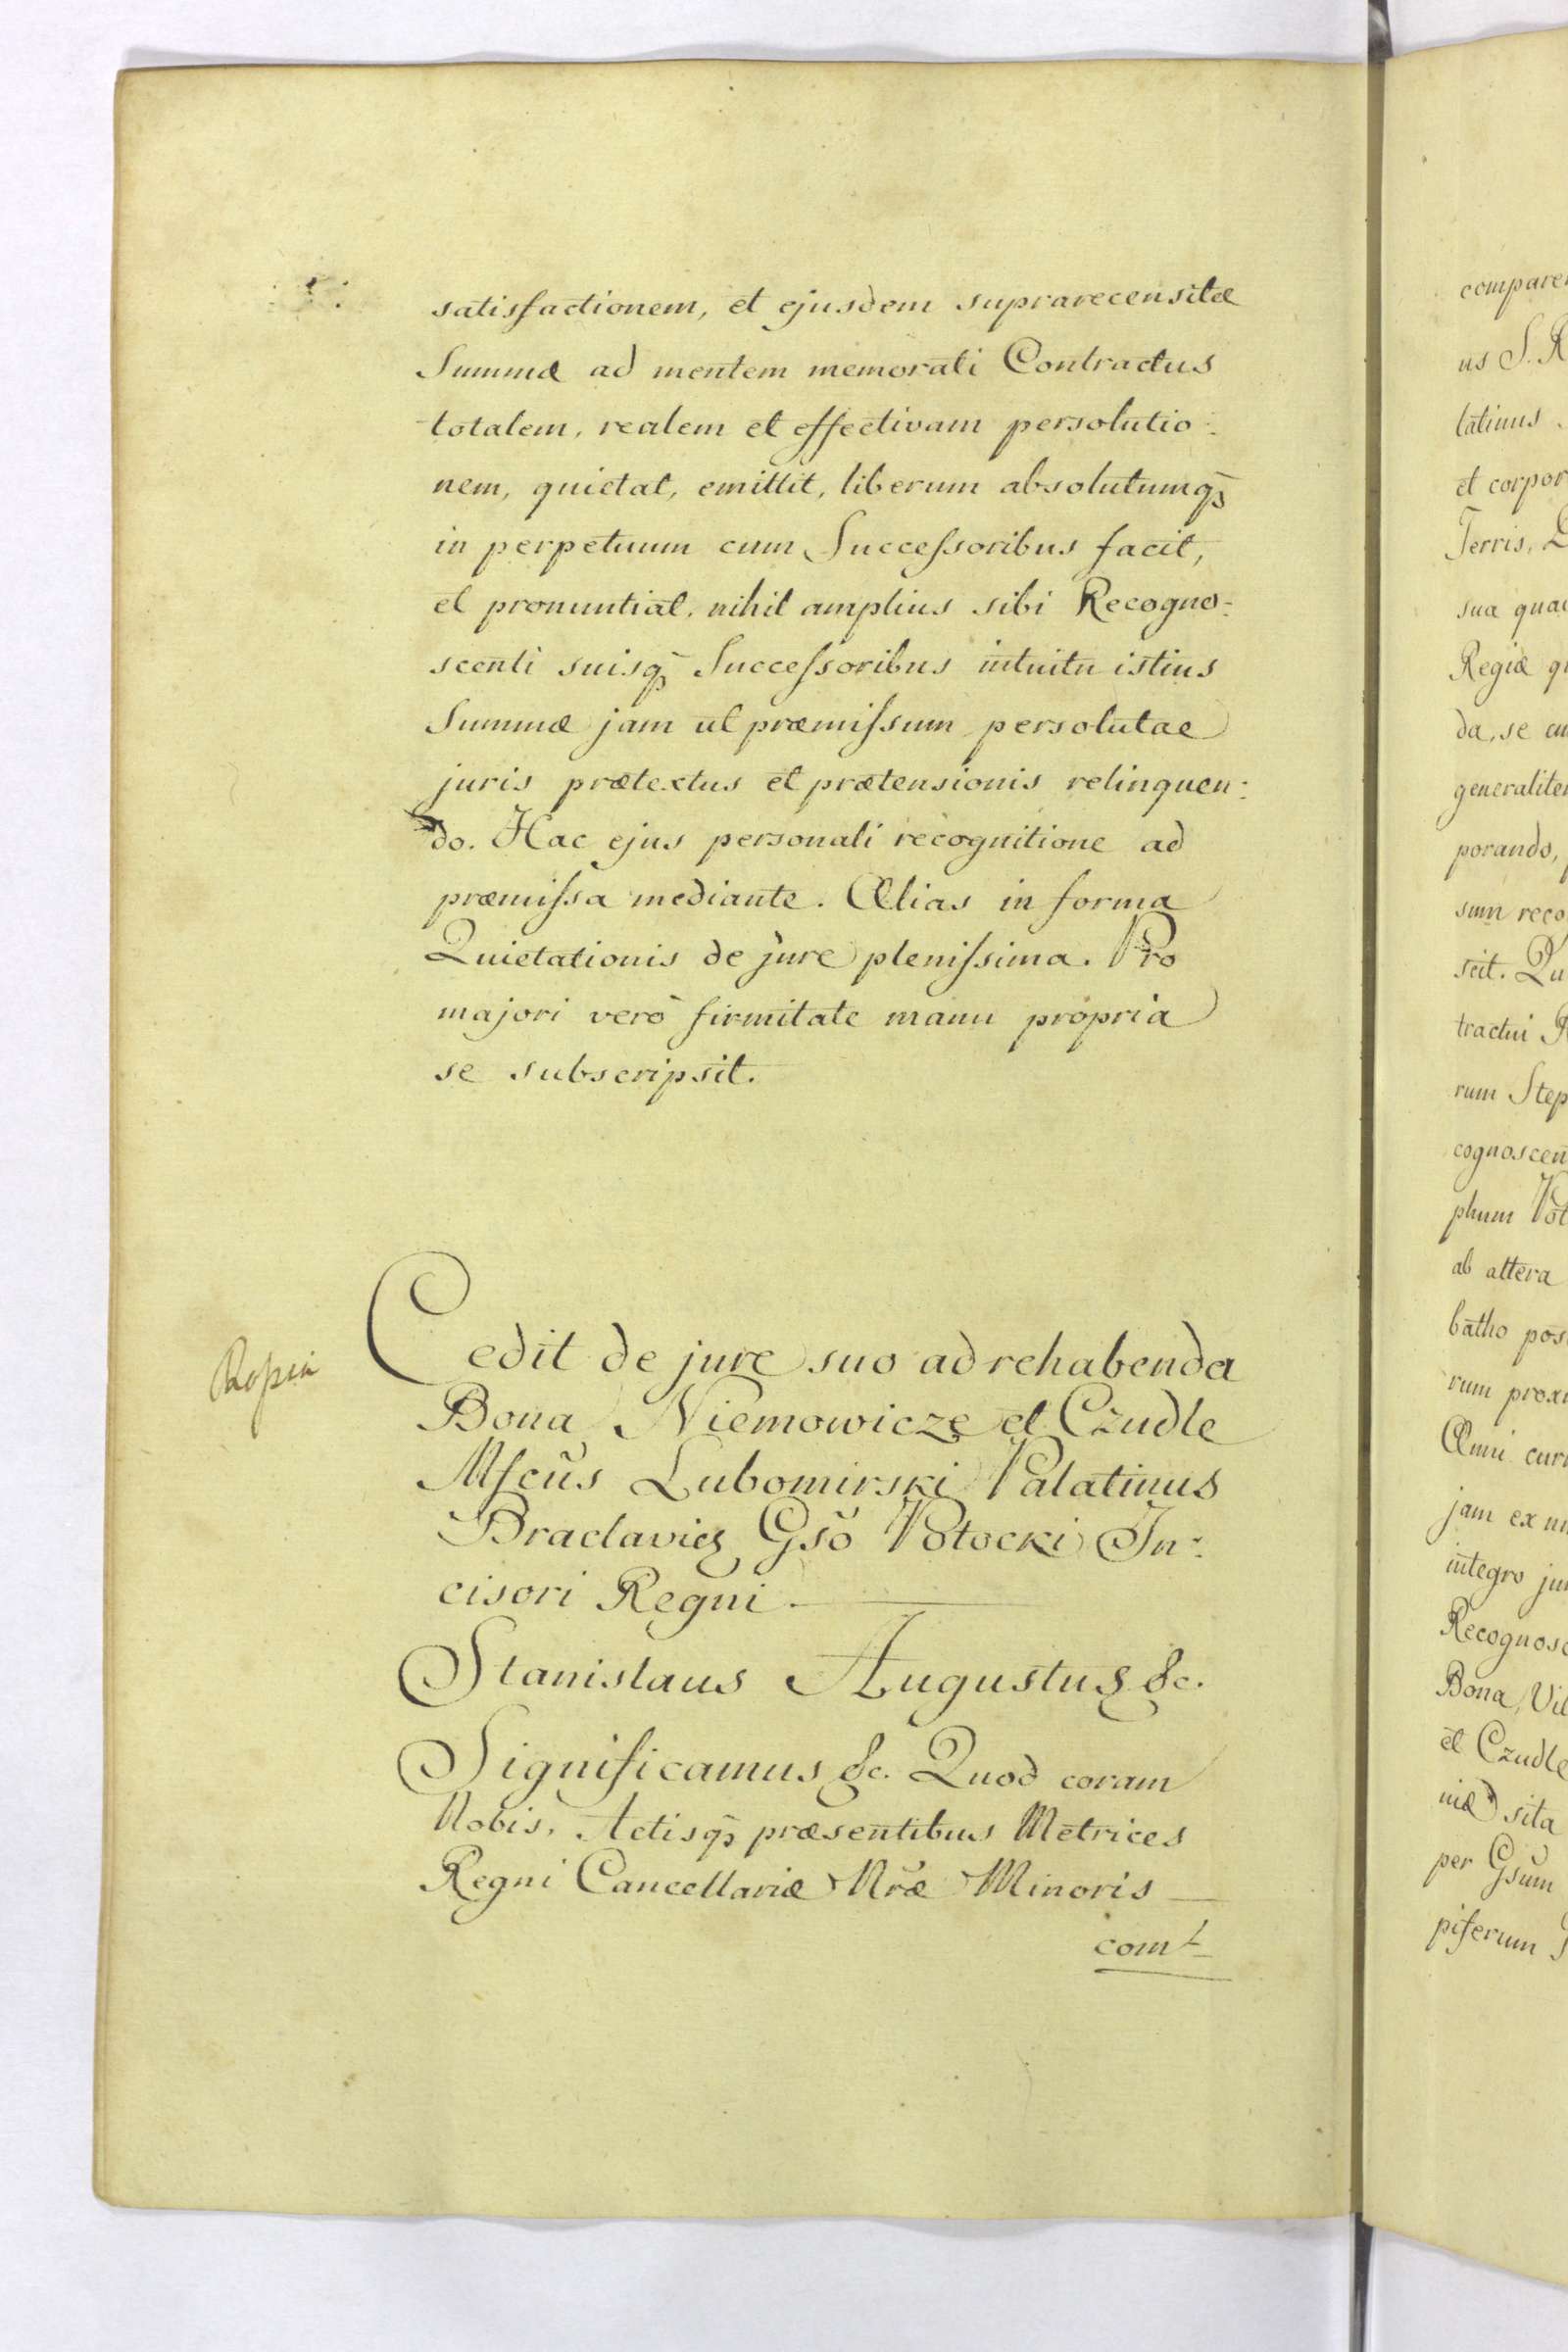 satisfactionem, et ejusdem suprarecensitæ
Summæ ad mentem memorati Contractus
totalem, realem et effectivam persolutio:
nem, quietat, emittit, liberum absolutumq̃
in perpetuum cum Succeſsoribus facit,
et pronuntiat, nihil amplius sibi Recogno:
scenti suisq̃ Succeſsoribus intuitu istius
Summæ jam ut præmiſsum persolutae
juris prætextus et prætensionis relinquen:
do. Hac ejus personali recognitione ad
præmiſsa mediante. Alias in forma
Quietationis de jure pleniſsima. Pro
majori verò firmitate manu propria
se subscripsit.
Cedit de jure suo ad rehabenda
Bona Niemowicze et Czudle
Mſcũs Lubomirski Palatinus
Braclavieŋ Gsõ Potocki In:
cisori Regni
Stanislaus Augustus &c.
Significamus &c. Quod coram
Nobis, Actisq̃ præsentibus Metrices
Regni Cancellariæ Nr̃æ Minoris
comt
comparen
us S. R
latinus
et corpor
Terris,
sua quac
Regiæ qu
da, se cu
generaliter
porando,
sum reco
scit. Qu
tractui
rum Step
cognoscen
phum Pot
ab altera
batho pos
rum prox
Anni curr
jam ex
integro ju
Recognosc
Bona, Vil
et Czudle
niæ sita
per Gsũm
piferum